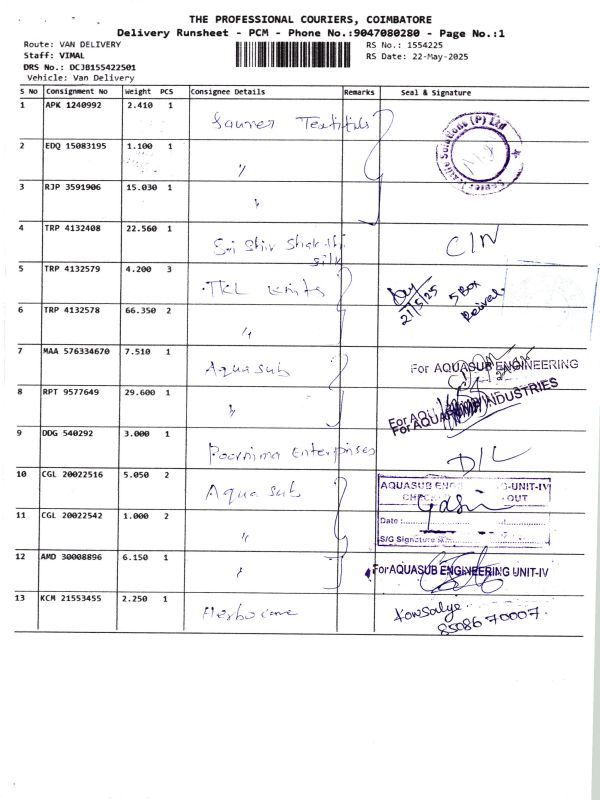 THE PROFESSIONAL COURIERS, COIMBATORE
Delivery Runsheet - PCM - Phone No.:9047080280 - Page No.:1
Route: VAN DELIVERY
Staff: VIMAL
DRS No.: DCJB155422501
Vehicle: Van Delivery
RS No.: 1554225
RS Date: 22-May-2025
S No Consignment No Weight PCS Consignee Details Remarks Seal & Signature
1 APK 1240992 2.410 1
2 EDQ 15083195 1.100 1 "
3 RJP 3591906 15.030 1 "
4 TRP 4132408 22.560 1 Sri Shiv Shakthi silk CIN
5 TRP 4132579 4.200 3 TKL Knits 21/5/25 5 Box
6 TRP 4132578 66.350 2 "
7 MAA 576334670 7.510 1 Aqua sub For AQUASUB ENGINEERING
8 RPT 9577649 29.600 1 " For AQUA INDUSTRIES
9 DDG 540292 3.000 1 Poornima Enterprises D/L
10 CGL 20022516 5.050 2 Aqua sub AQUASUB ENGG -UNIT-IV
OUT
11 CGL 20022542 1.000 2 " Date :
S/G Signature
12 AMD 30008896 6.150 1 " For AQUASUB ENGINEERING UNIT-IV
13 KCM 21553455 2.250 1 Kowsalya
85086 70007